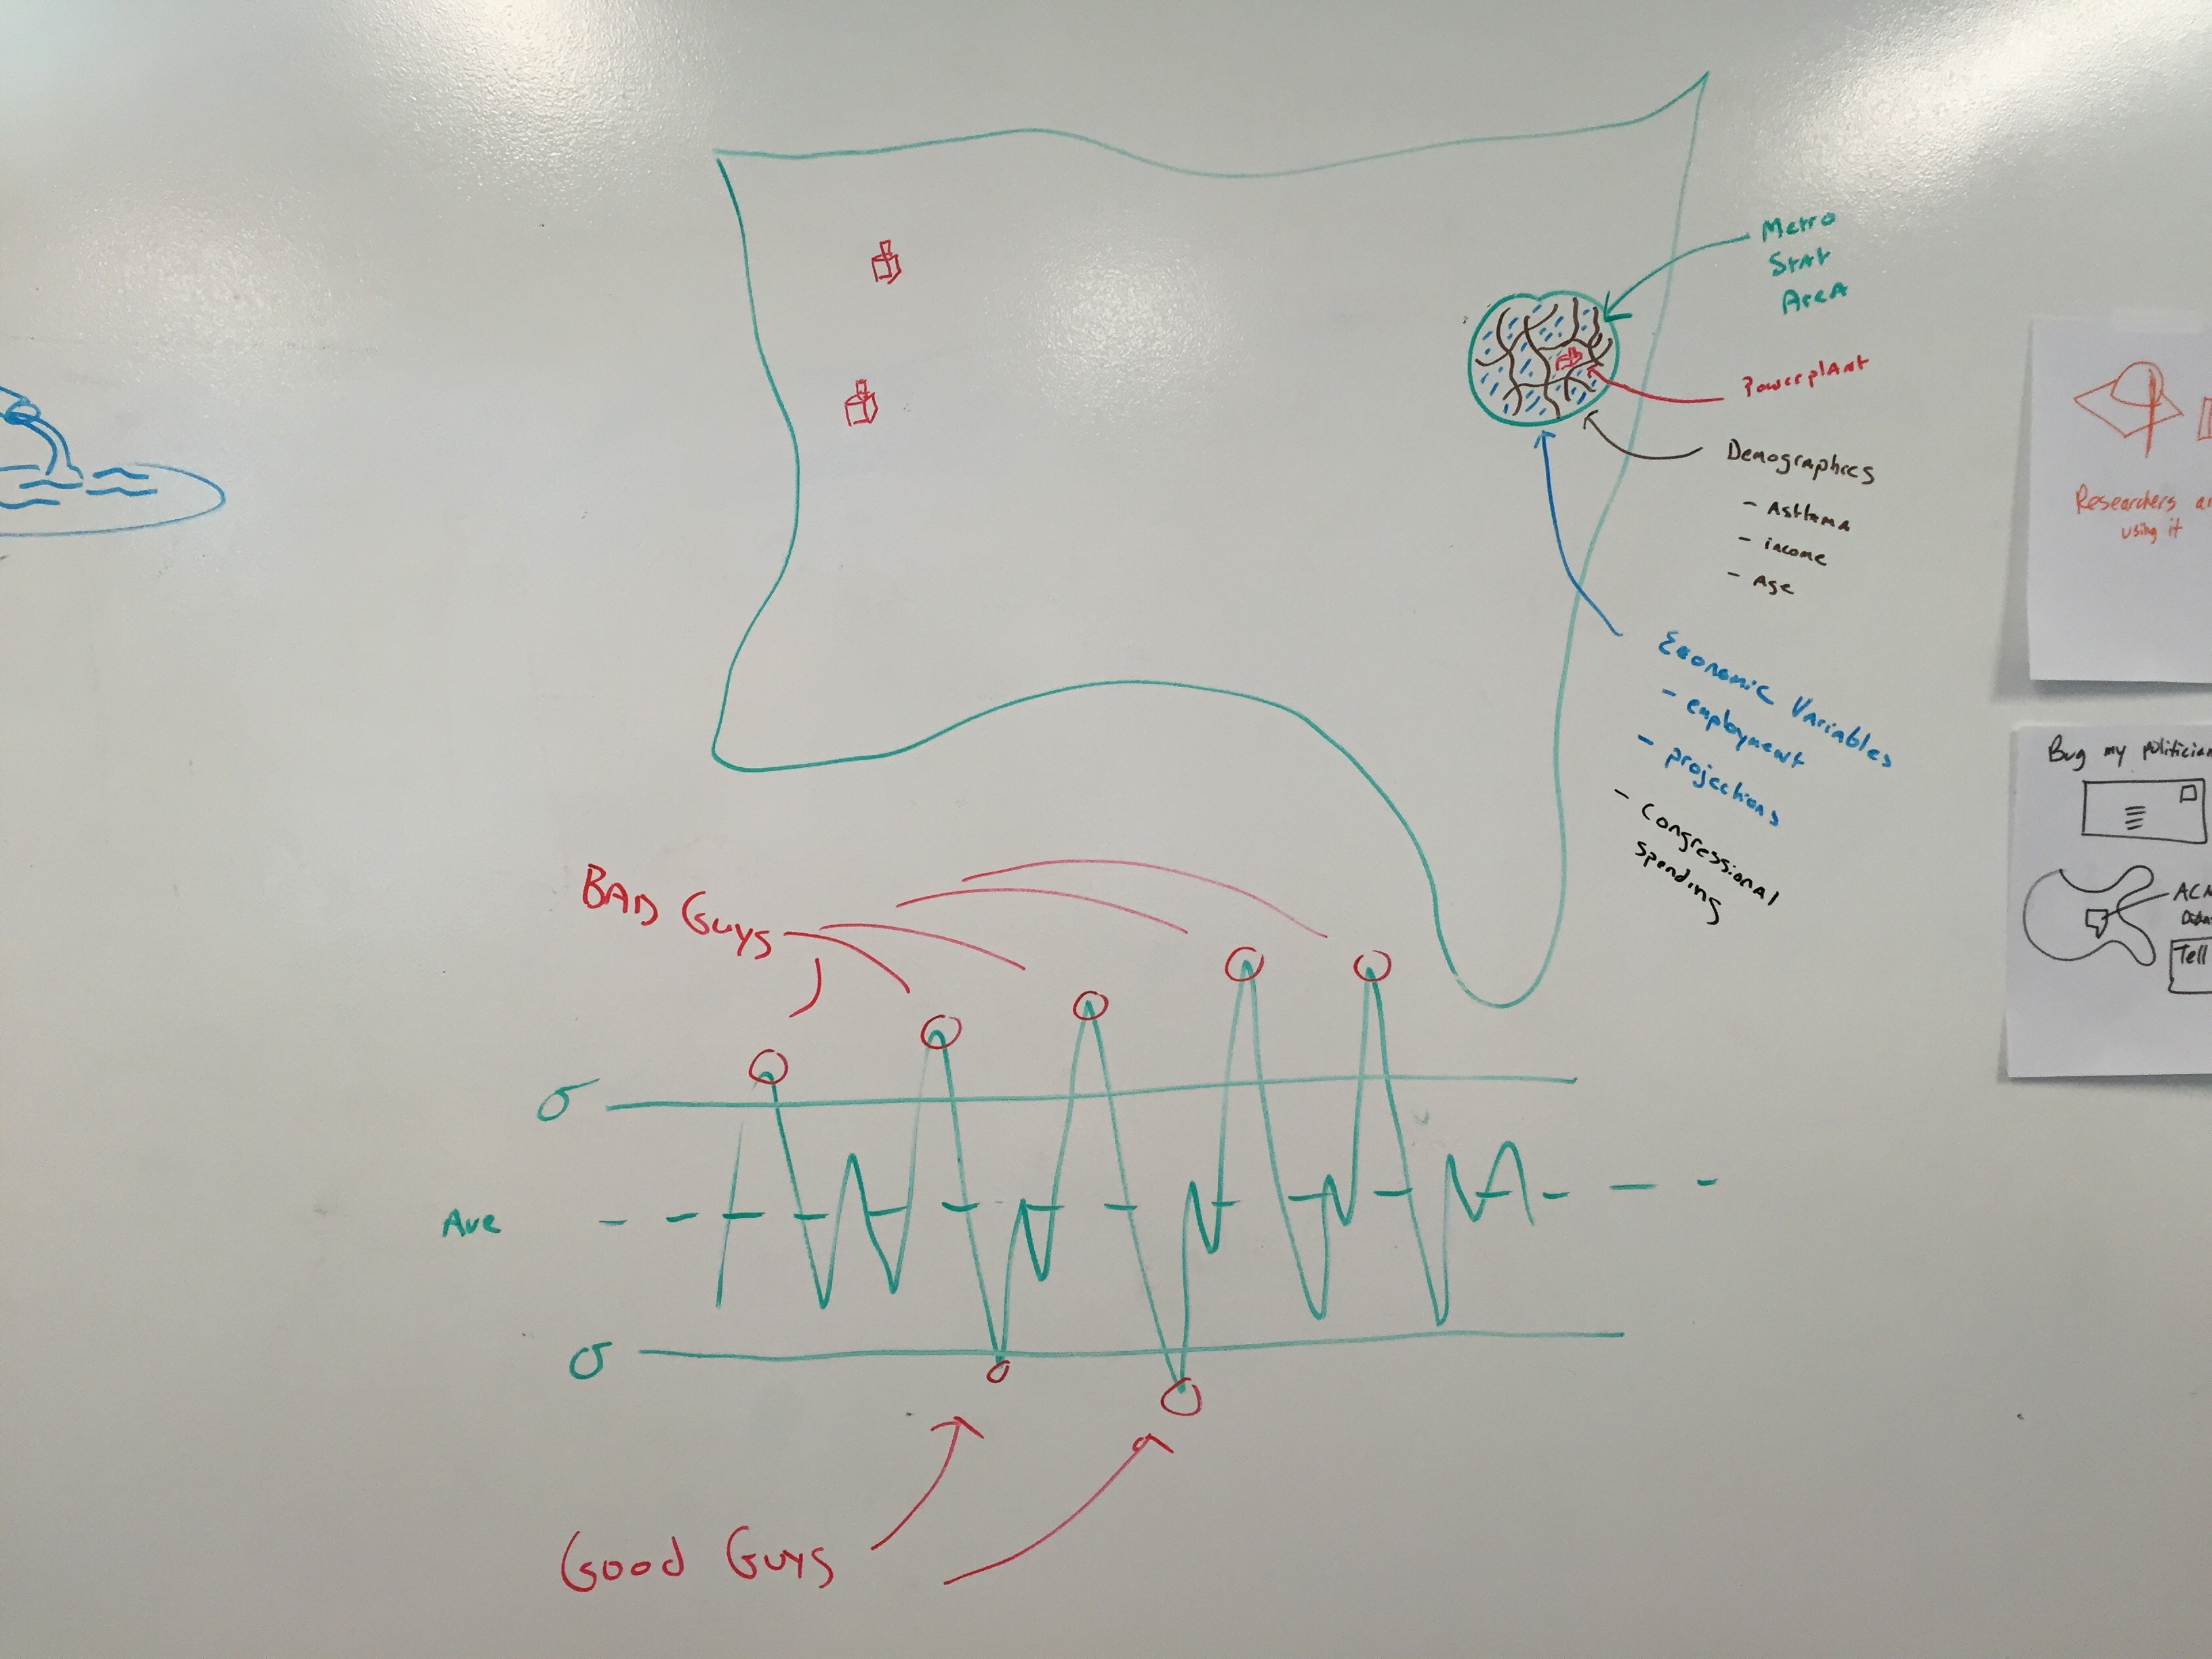 Metro
Stat
Area
Powerplant
Demographics
- Asthma
- income
- Age
Economic Variables
- employment
- projections
- Congressional
spending
BAD Guys
σ
Ave
σ
Good Guys
Researchers
using it
Bug my politician
Tell